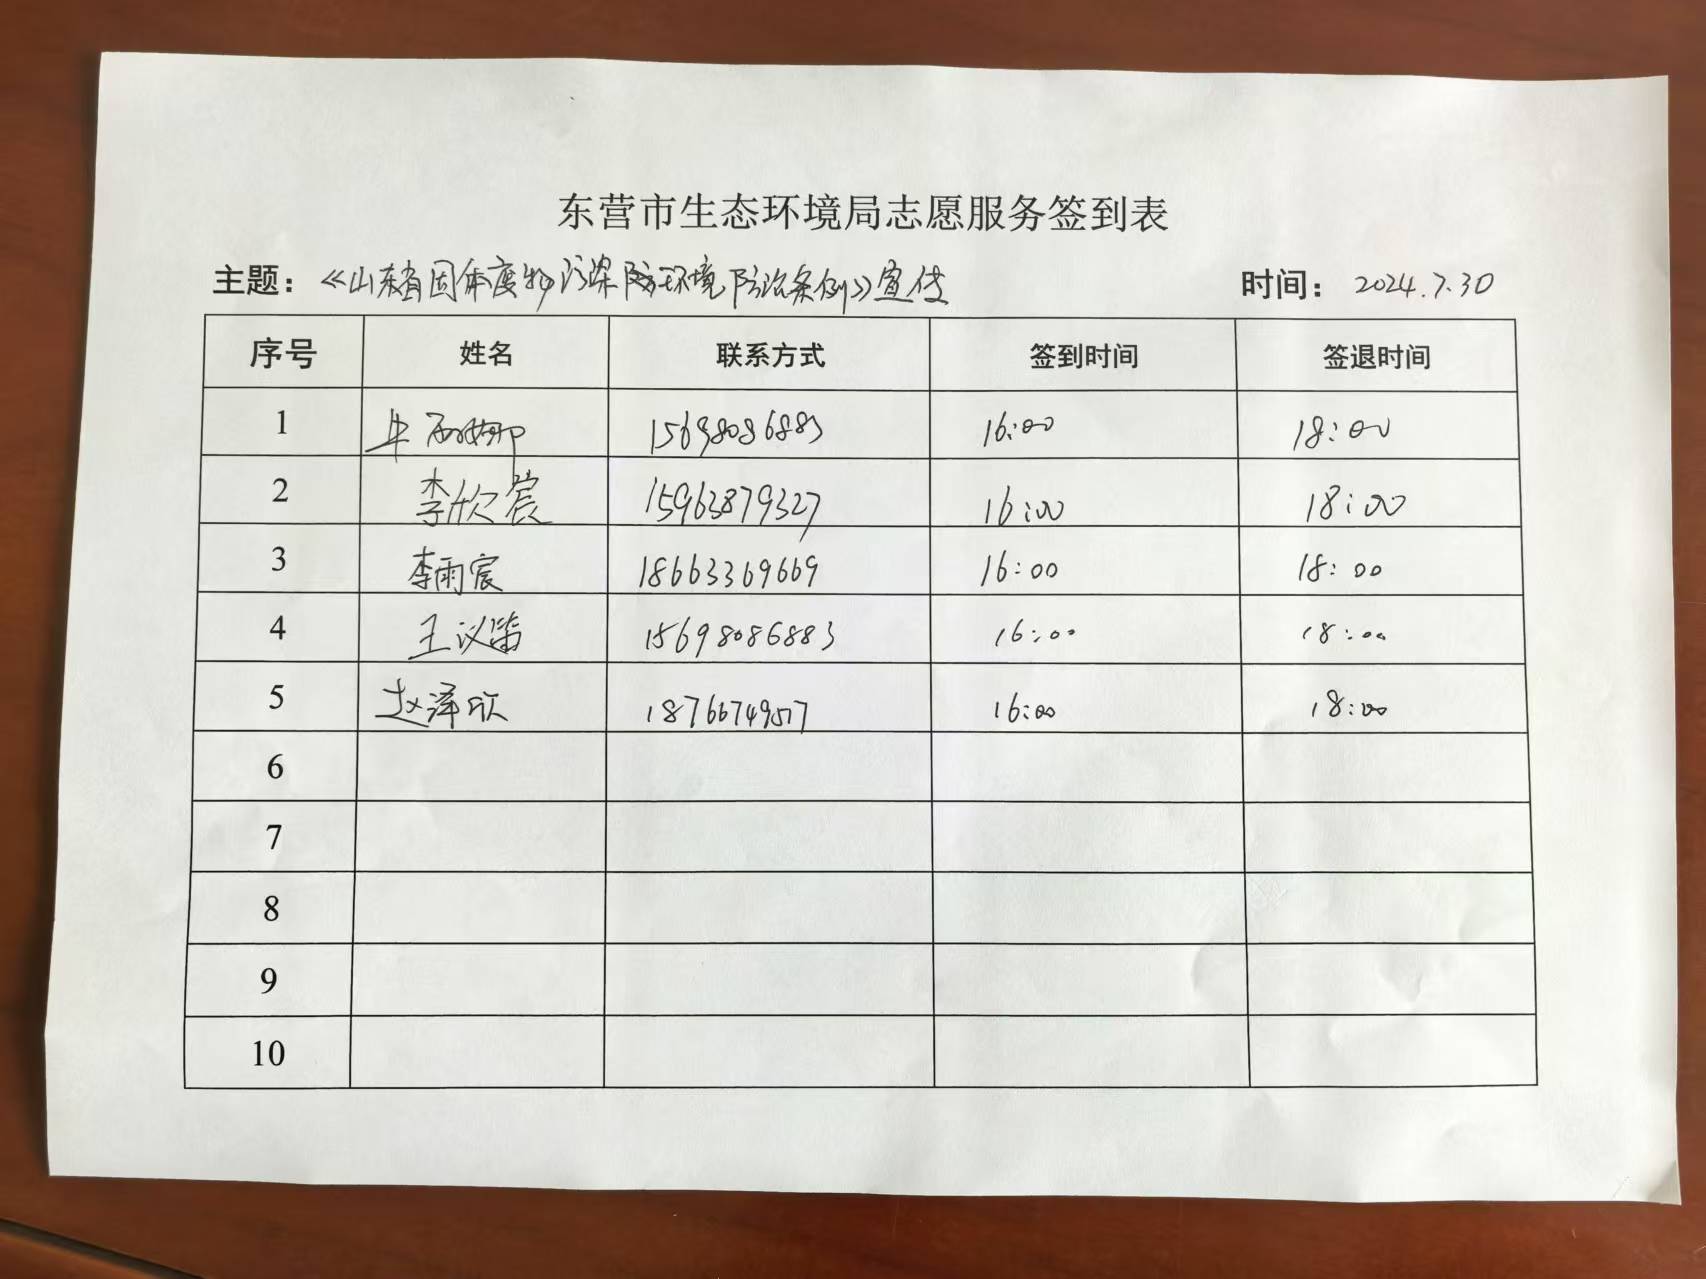 东营市生态环境局志愿服务签到表
主题：《山东省固体废物污染环境防治条例》宣传 时间：2024.7.30
序号 姓名 联系方式 签到时间 签退时间
1 牛丽娜 15698086883 16:00 18:00
2 李欣宸 15963879327 16:00 18:00
3 李雨宸 18663369669 16:00 18:00
4 王议笛 15698086883 16:00 18:00
5 赵泽欣 18766749517 16:00 18:00
6
7
8
9
10